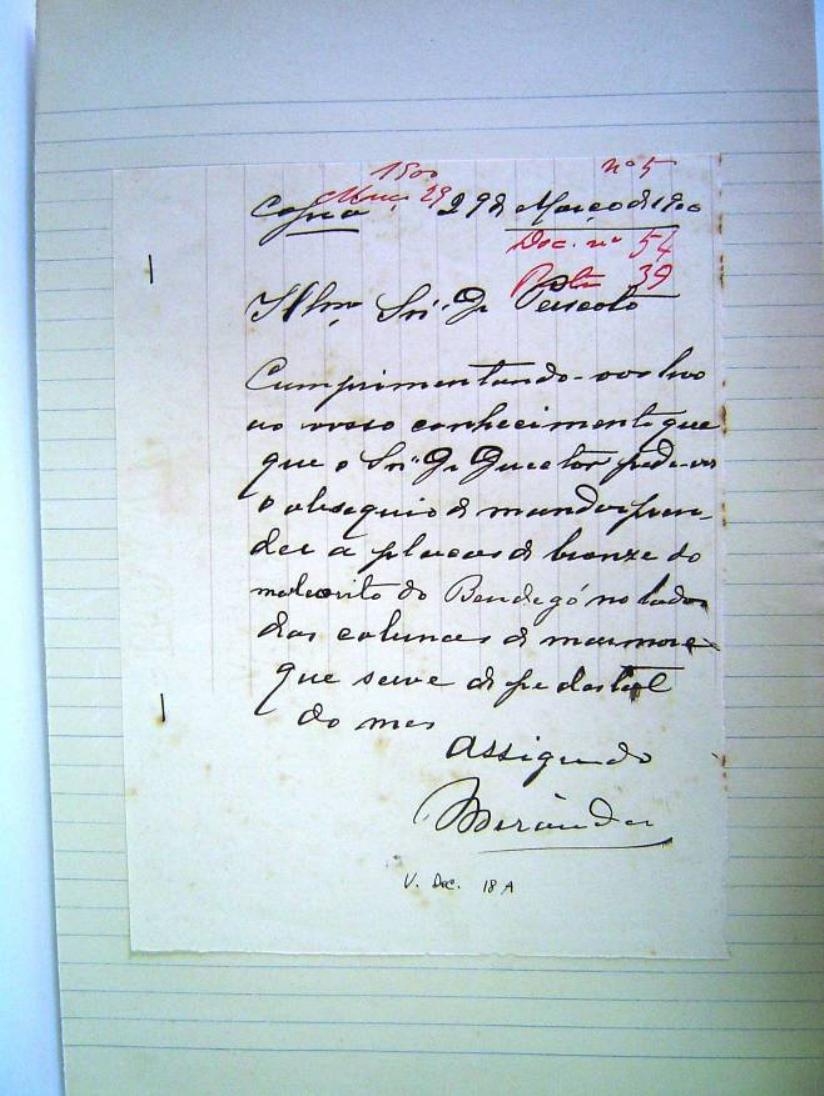 1900 nº 5
Março 29
Copia 29 de Março de 1900
Doc. nº 54
Pasta 39
Illmo Snr. Dr. Peixoto
Cumprimentando-vos levo
ao vosso conhecimento que
que o Snr. Dr. Director pede-vos
o obsequio de mandar pren-
der a placas de bronze do
meteorito do Bendegó no lados
das colunas de marmore
que serve de pedestal
do mes
Assignado
Miranda
V. Doc. 18 A